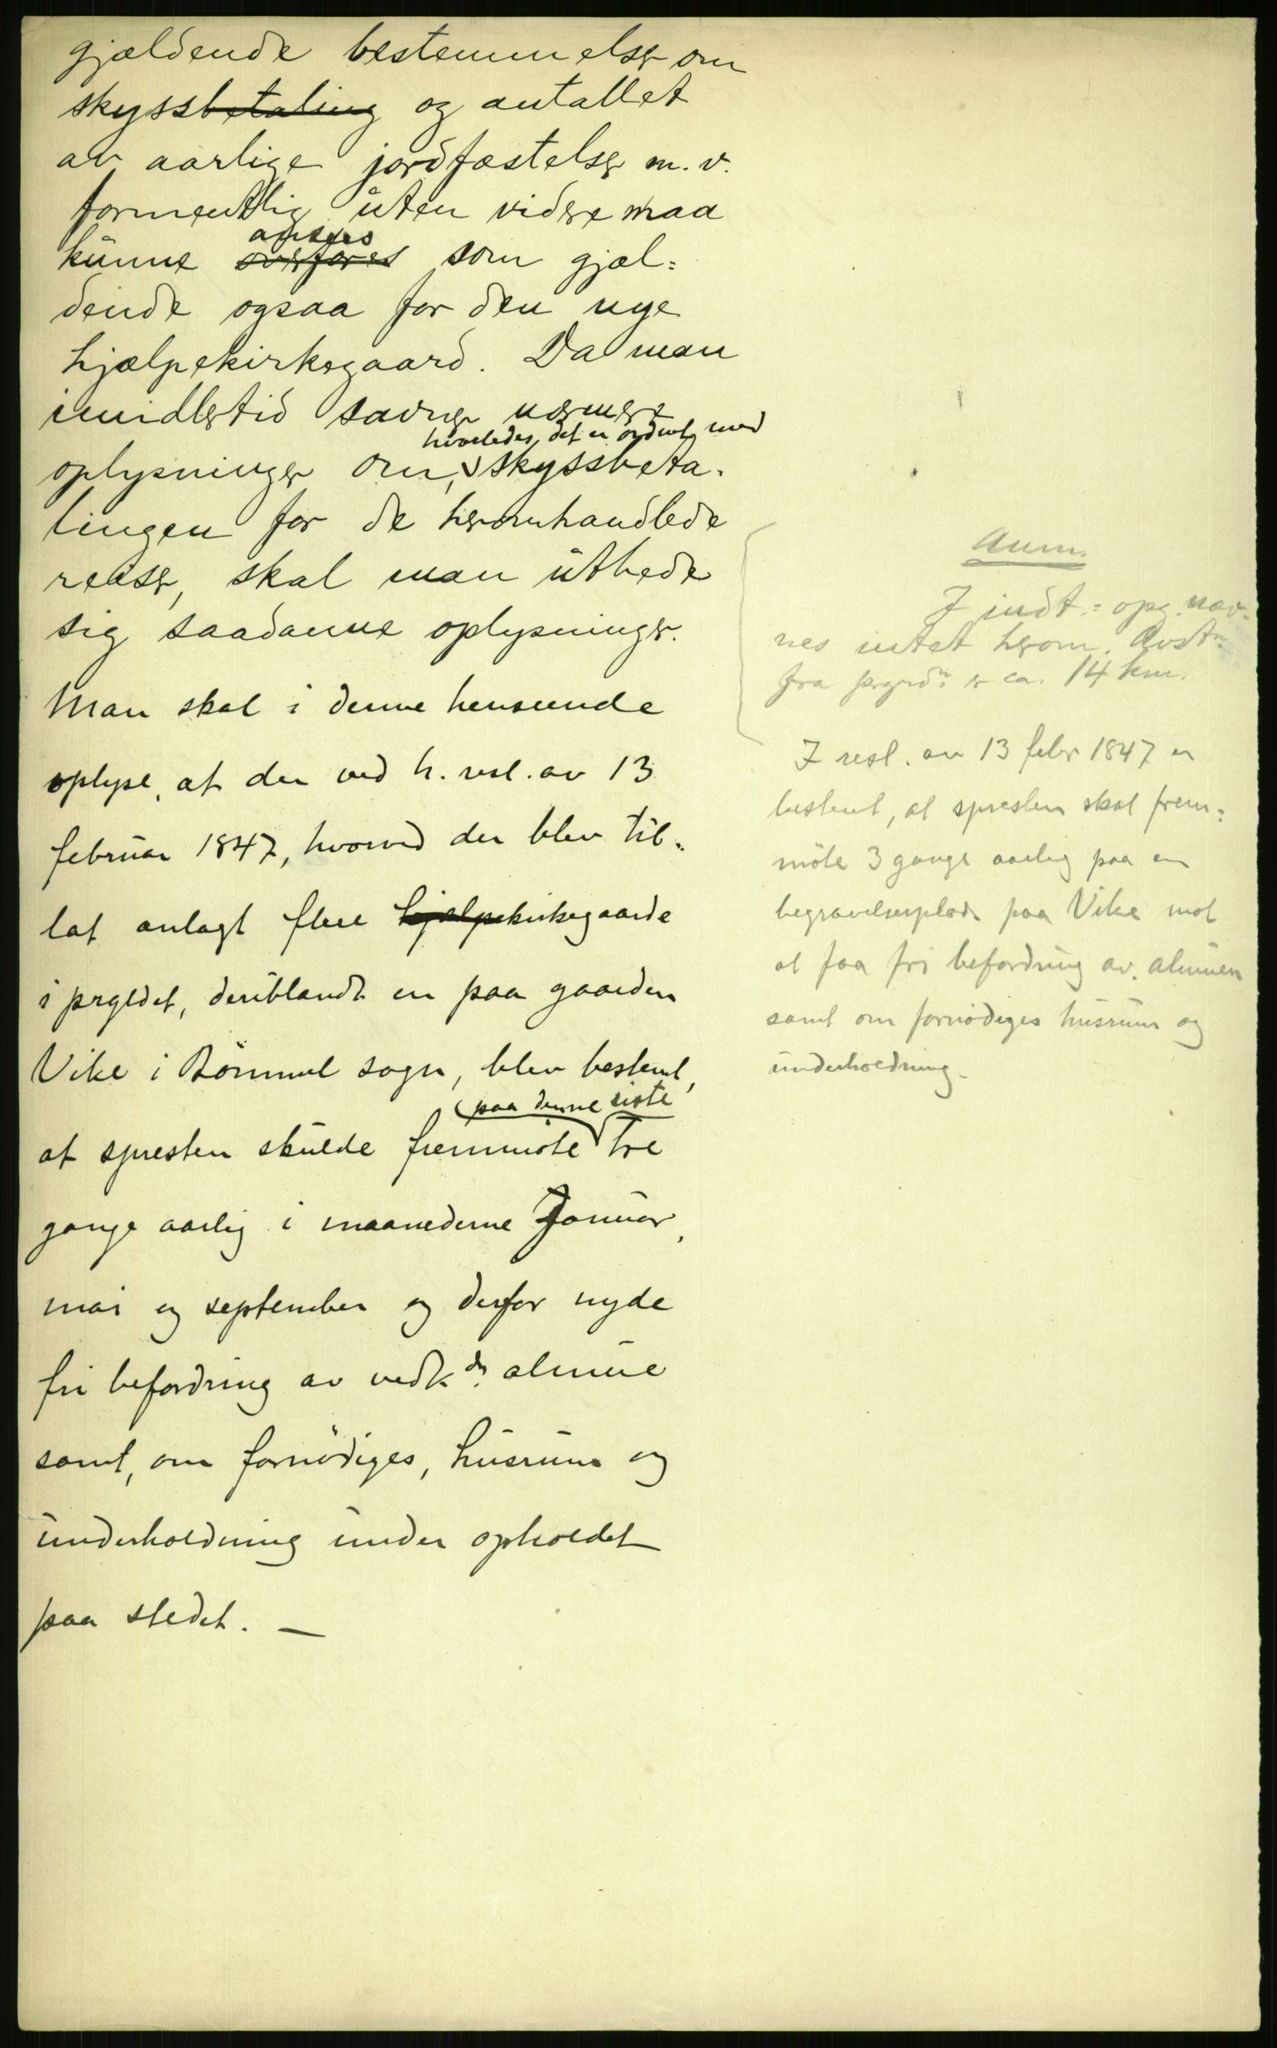 gjældende bestemmelser om
skyssbetaling og antallet
av aarlige jordfæstelser m.v.
formentlig uten videre maa
kunne overføres ansees som gjæl=
dende ogsaa for den nye
hjælpekirkegaard. Da man
imidlertid savner nærmere
oplysninger om, hvorledes det er ordnet med skyssbeta=
lingen for de heromhandlede
reiser, skal man utbede
sig saadanne oplysninger.
Man skal i denne henseende
oplyse, at der ved h. resl. av 13
februar 1847, hvorved der blev til=
lat anlagt flere hjælpekirkegaarde
i prgldet, deriblandt en paa gaarden
Vike i Bömmel sogn, blev bestemt,
at spresten skulde fremmöte paa denne siste tre
gange aarlig i maanederne Januar,
mai og september og derfor nyde
fri befordring av vedkde almue
samt, om fornödiges, husrum og
underholdning under opholdet
paa stedet. —
Anm.
I indt=opg. næv=
nes intet herom. Avstn
fra prgrdn er ca. 14 km.
I resl. av 13 febr 1847 er
bestemt, at spresten skal frem=
möte 3 gange aarlig paa en
begravelsesplads paa Vike mot
at faa fri befordring av almuen
samt om fornödiges husrum og
underholdning.